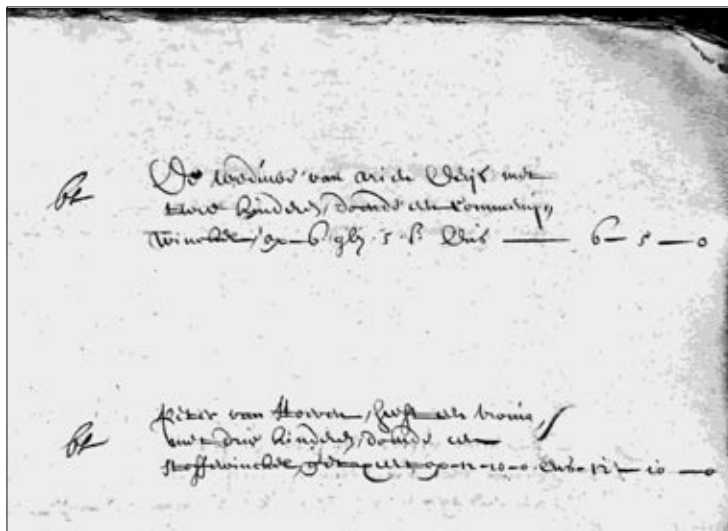 bt De weduwe van Arien Theijs met
twee kinderen, doende een Commenij
winckel, op 6 gls. 5 s. dus 6 - 5 - 0
bt Pieter van Hoeven, heeft een vrouw,
met drie kinderen, doende een
stoffewinckel, getaxeert op 12-10-0 dus 12 - 10 - 0